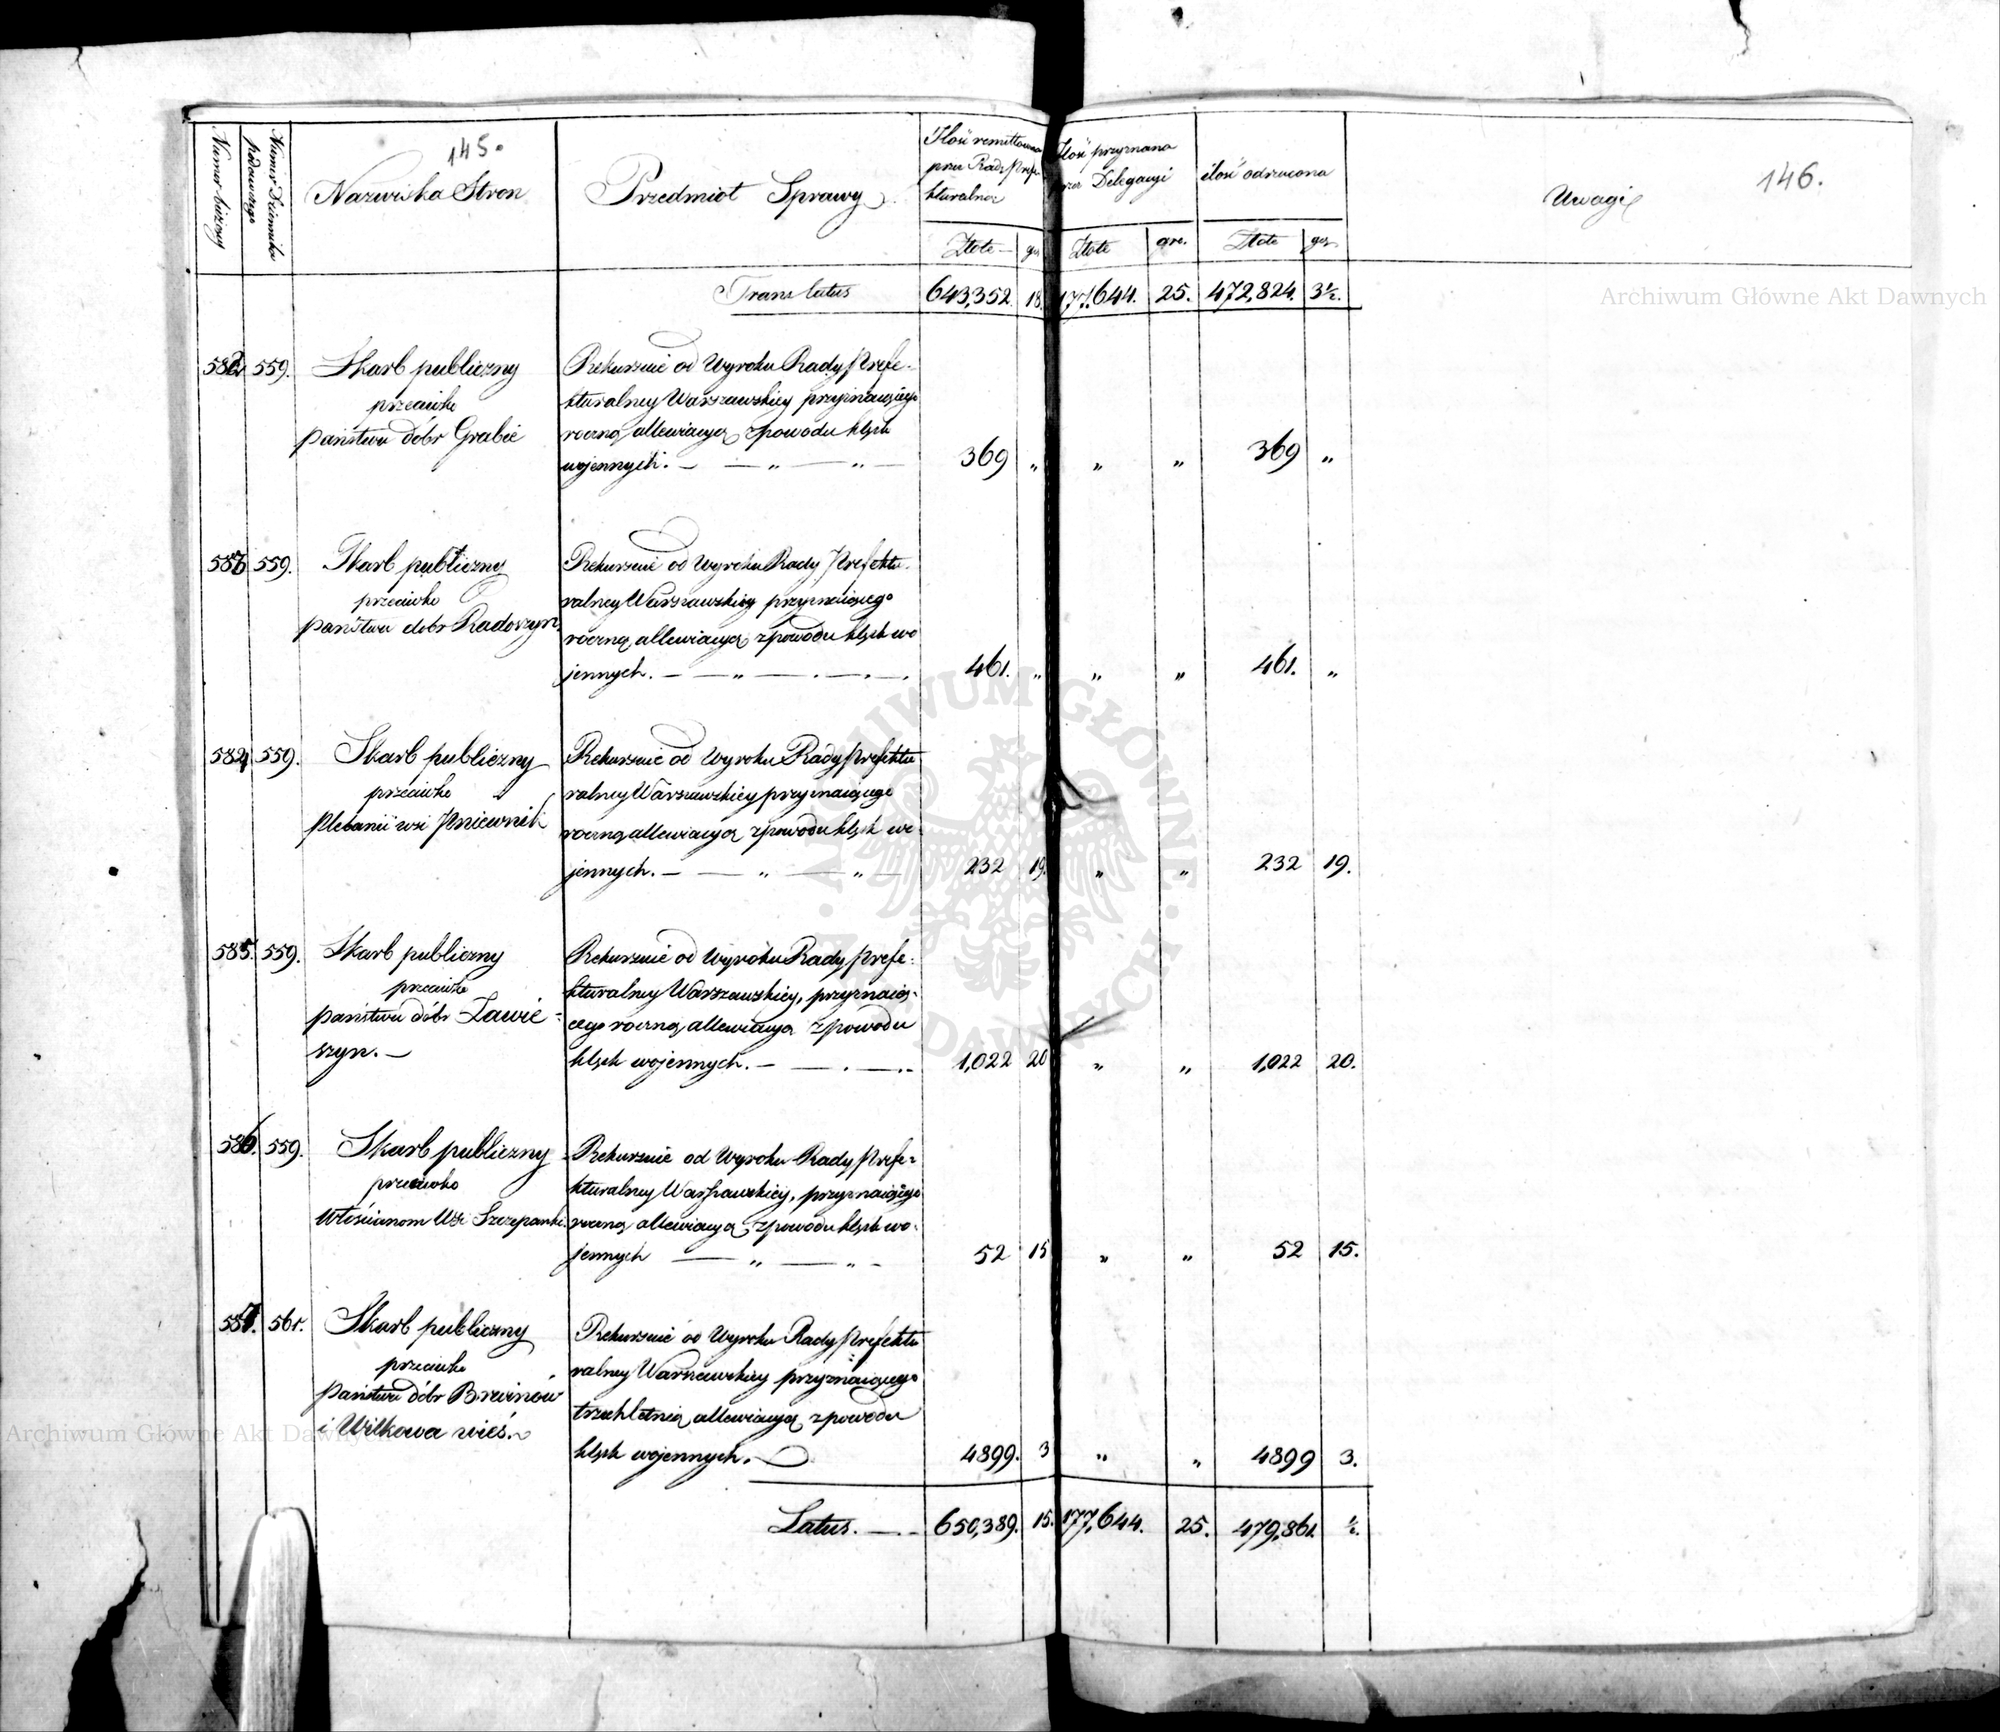 145.
146.
Numer bieżący
Numer Dziennika
podawczego
Nazwiska Stron
Przedmiot Sprawy
Ilość remittowana
przez Radę Prefe-
kturalną
Ilość przyznana
przez Delegacyi
ilość odrzucona
Uwagi
Złote gr. Złote gro. Złote gr.
Translatus 643,352 18. 177,644. 25. 472,824. 3½.
582 559. Skarb publiczny
przeciwko
państwu dóbr Grabie
Rekurzuie od Wyroku Rady Prefe-
kturalney Warszawskiey przyznaiącego
roczną allewiacyą z powodu klęsk
wojennych. — — „ — „ — 369 „ „ „ 369 „
583 559. Skarb publiczny
przeciwko
państwu dobr Radoszyn
Rekurzuie od Wyroku Rady Prefektu-
ralney Warszawskiey przyznaiącego
roczną allewiacyą z powodu klęsk wo
jennych. — — „ — . — . — . 461. „ „ „ 461. „
584 559. Skarb publiczny
przeciwko
Plebanii wsi Pniewnik
Rekurzuie od Wyroku Rady Prefektu
ralney Warszawskiey przyznaiącego
roczną allewiacyą z powodu klęsk wo-
jennych. — — „ — „ — 232 19. „ „ 232 19.
585. 559. Skarb publiczny
przeciwko
państwu dóbr Zawie-
szyn. —
Rekurzuie od Wyroku Rady Prefe-
kturalney Warszawskiey, przyznaią-
cego roczną allewiacyą z powodu
klęsk wojennych. — — . — .. 1,022 20 „ „ 1,022 20.
586. 559. Skarb publiczny
przeciwko
Włościanom Wsi Szczepanki
Rekurzuie od Wyroku Rady Prefe-
kturalney Warszawskiey, przyznaiącego
roczną allewiacyą z powodu klęsk wo-
jennych — „ — „ - 52 15 „ „ 52 15.
587. 561. Skarb publiczny
przeciwko
Państwu dóbr Brwinów
i Wilkowa wieś.
Rekurzuie od Wyroku Rady Prefektu
ralney Warszawskiey przyznaiącego
trzechletnią allewiacyą z powodu
klęsk wojennych. 4899. 3 „ „ 4899 3.
Latus. — - 650,389. 15. 177,644. 25. 479,861. ½.
Archiwum Główne Akt Dawnych
Archiwum Główne Akt Dawnych
ARCHIWUM GŁÓWNE AKT DAWNYCH